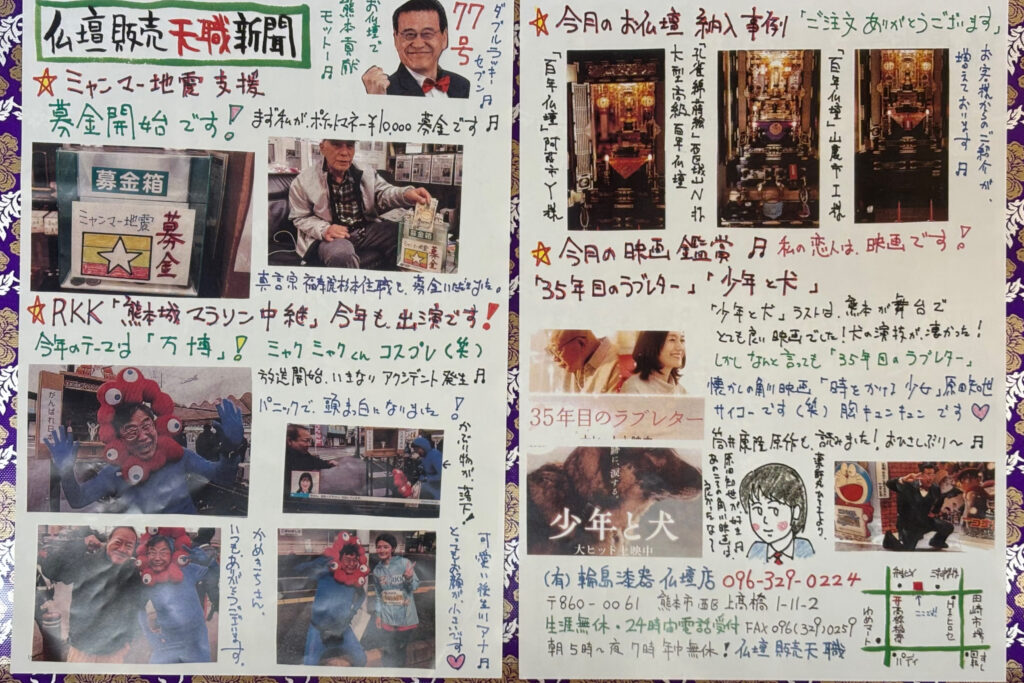 仏壇販売天職新聞
お仏壇で
熊本貢献
モットー♬
77号
ダブルラッキーセブン♬
☆ミャンマー地震支援
募金開始です!
まず私が、ポケットマネー¥10,000募金です♬
募金箱
ミャンマー地震
募金
募金箱
☆RKK「熊本城マラソン中継」今年も、出演です!
今年のテーマは「万博」!
ミャクミャクくんコスプレ(笑)
放送開始、いきなりアクシデント発生♬
パニックで、頭まっ白になりました!
かぶり物が、落下!
がんばれ日
かめきちさん、
いつもありがとうございます。
可愛い後生川アナ♬
とってもお顔が小さいです♡
☆今月のお仏壇納入事例「ご注文ありがとうございます」
大型高級百年仏壇
「百年仏壇」阿蘇市Y様
「百年仏壇」山鹿市I様
お客様からのご紹介が、
増えております♬
☆今月の映画鑑賞♬私の恋人は、映画です!
「35年目のラブレター」「少年と犬」
「少年と犬」ラストは、熊本が舞台で
とても良い映画でした!犬の演技が、凄かった!
しかしなんと言っても「35年目のラブレター」
懐かしの角川映画「時をかける少女」原田知世
サイコーです(笑)胸キュンキュンです♡
筒井康隆原作も、読みました!おひさしぶり~♬
35年目のラブレター
少年と犬
大ヒット上映中
原田知世が好き♬
あのころの角川映画は、
(有)輪島漆器仏壇店 096-329-0224
〒860-0061 熊本市西区上高橋1-11-2
生涯無休・24時間電話受付 FAX096(329)0259
朝5時~夜7時年中無休!仏壇販売天職
田崎市場
ここです
上高橋